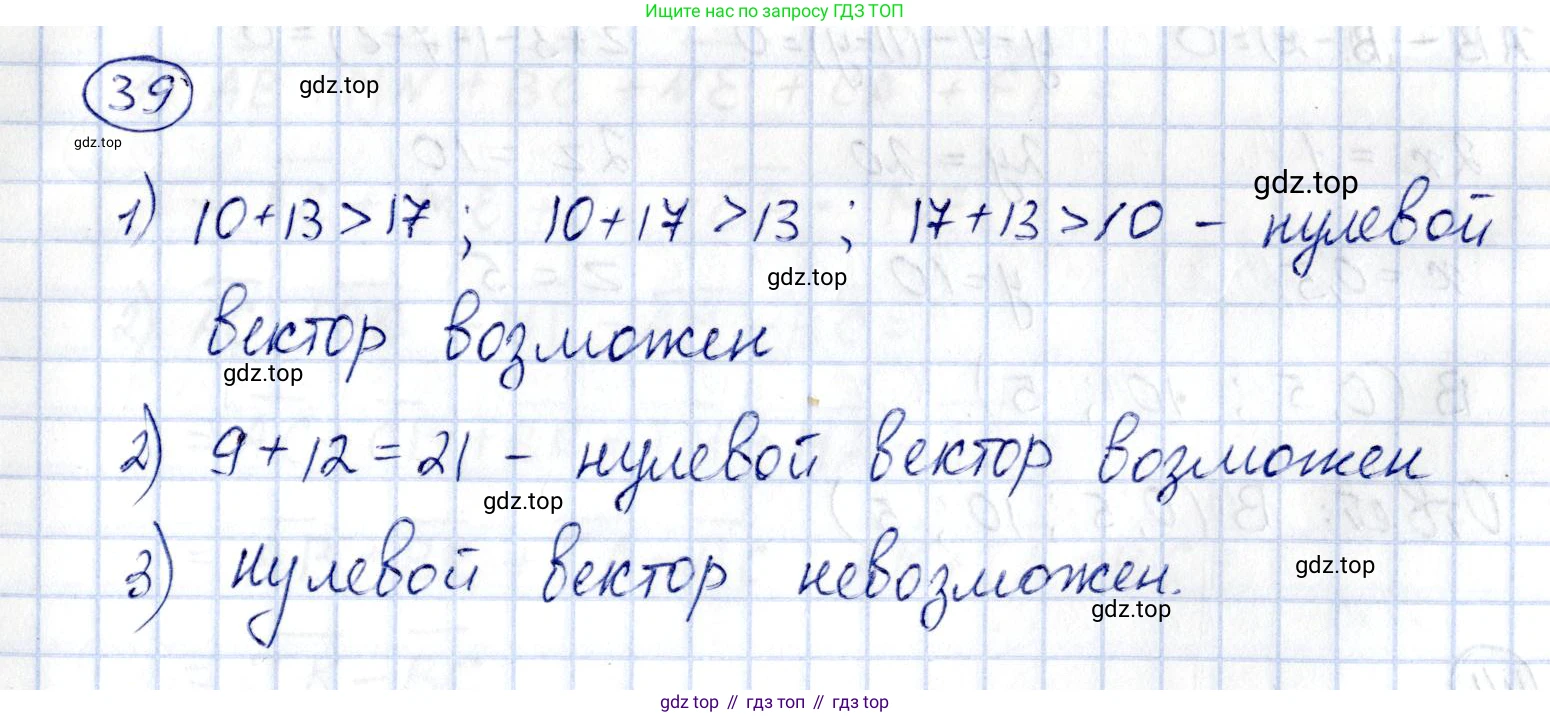 Ищите нас по запросу ГДЗ ТОП
39 gdz.top
gdz.top
gdz.top
1) 10+13>17; 10+17>13; 17+13>10 - нулевой
gdz.top
вектор возможен
gdz.top
2) 9+12=21 - нулевой вектор возможен
gdz.top
3) нулевой вектор невозможен.
gdz.top
gdz.top
gdz top // гдз топ // гдз top